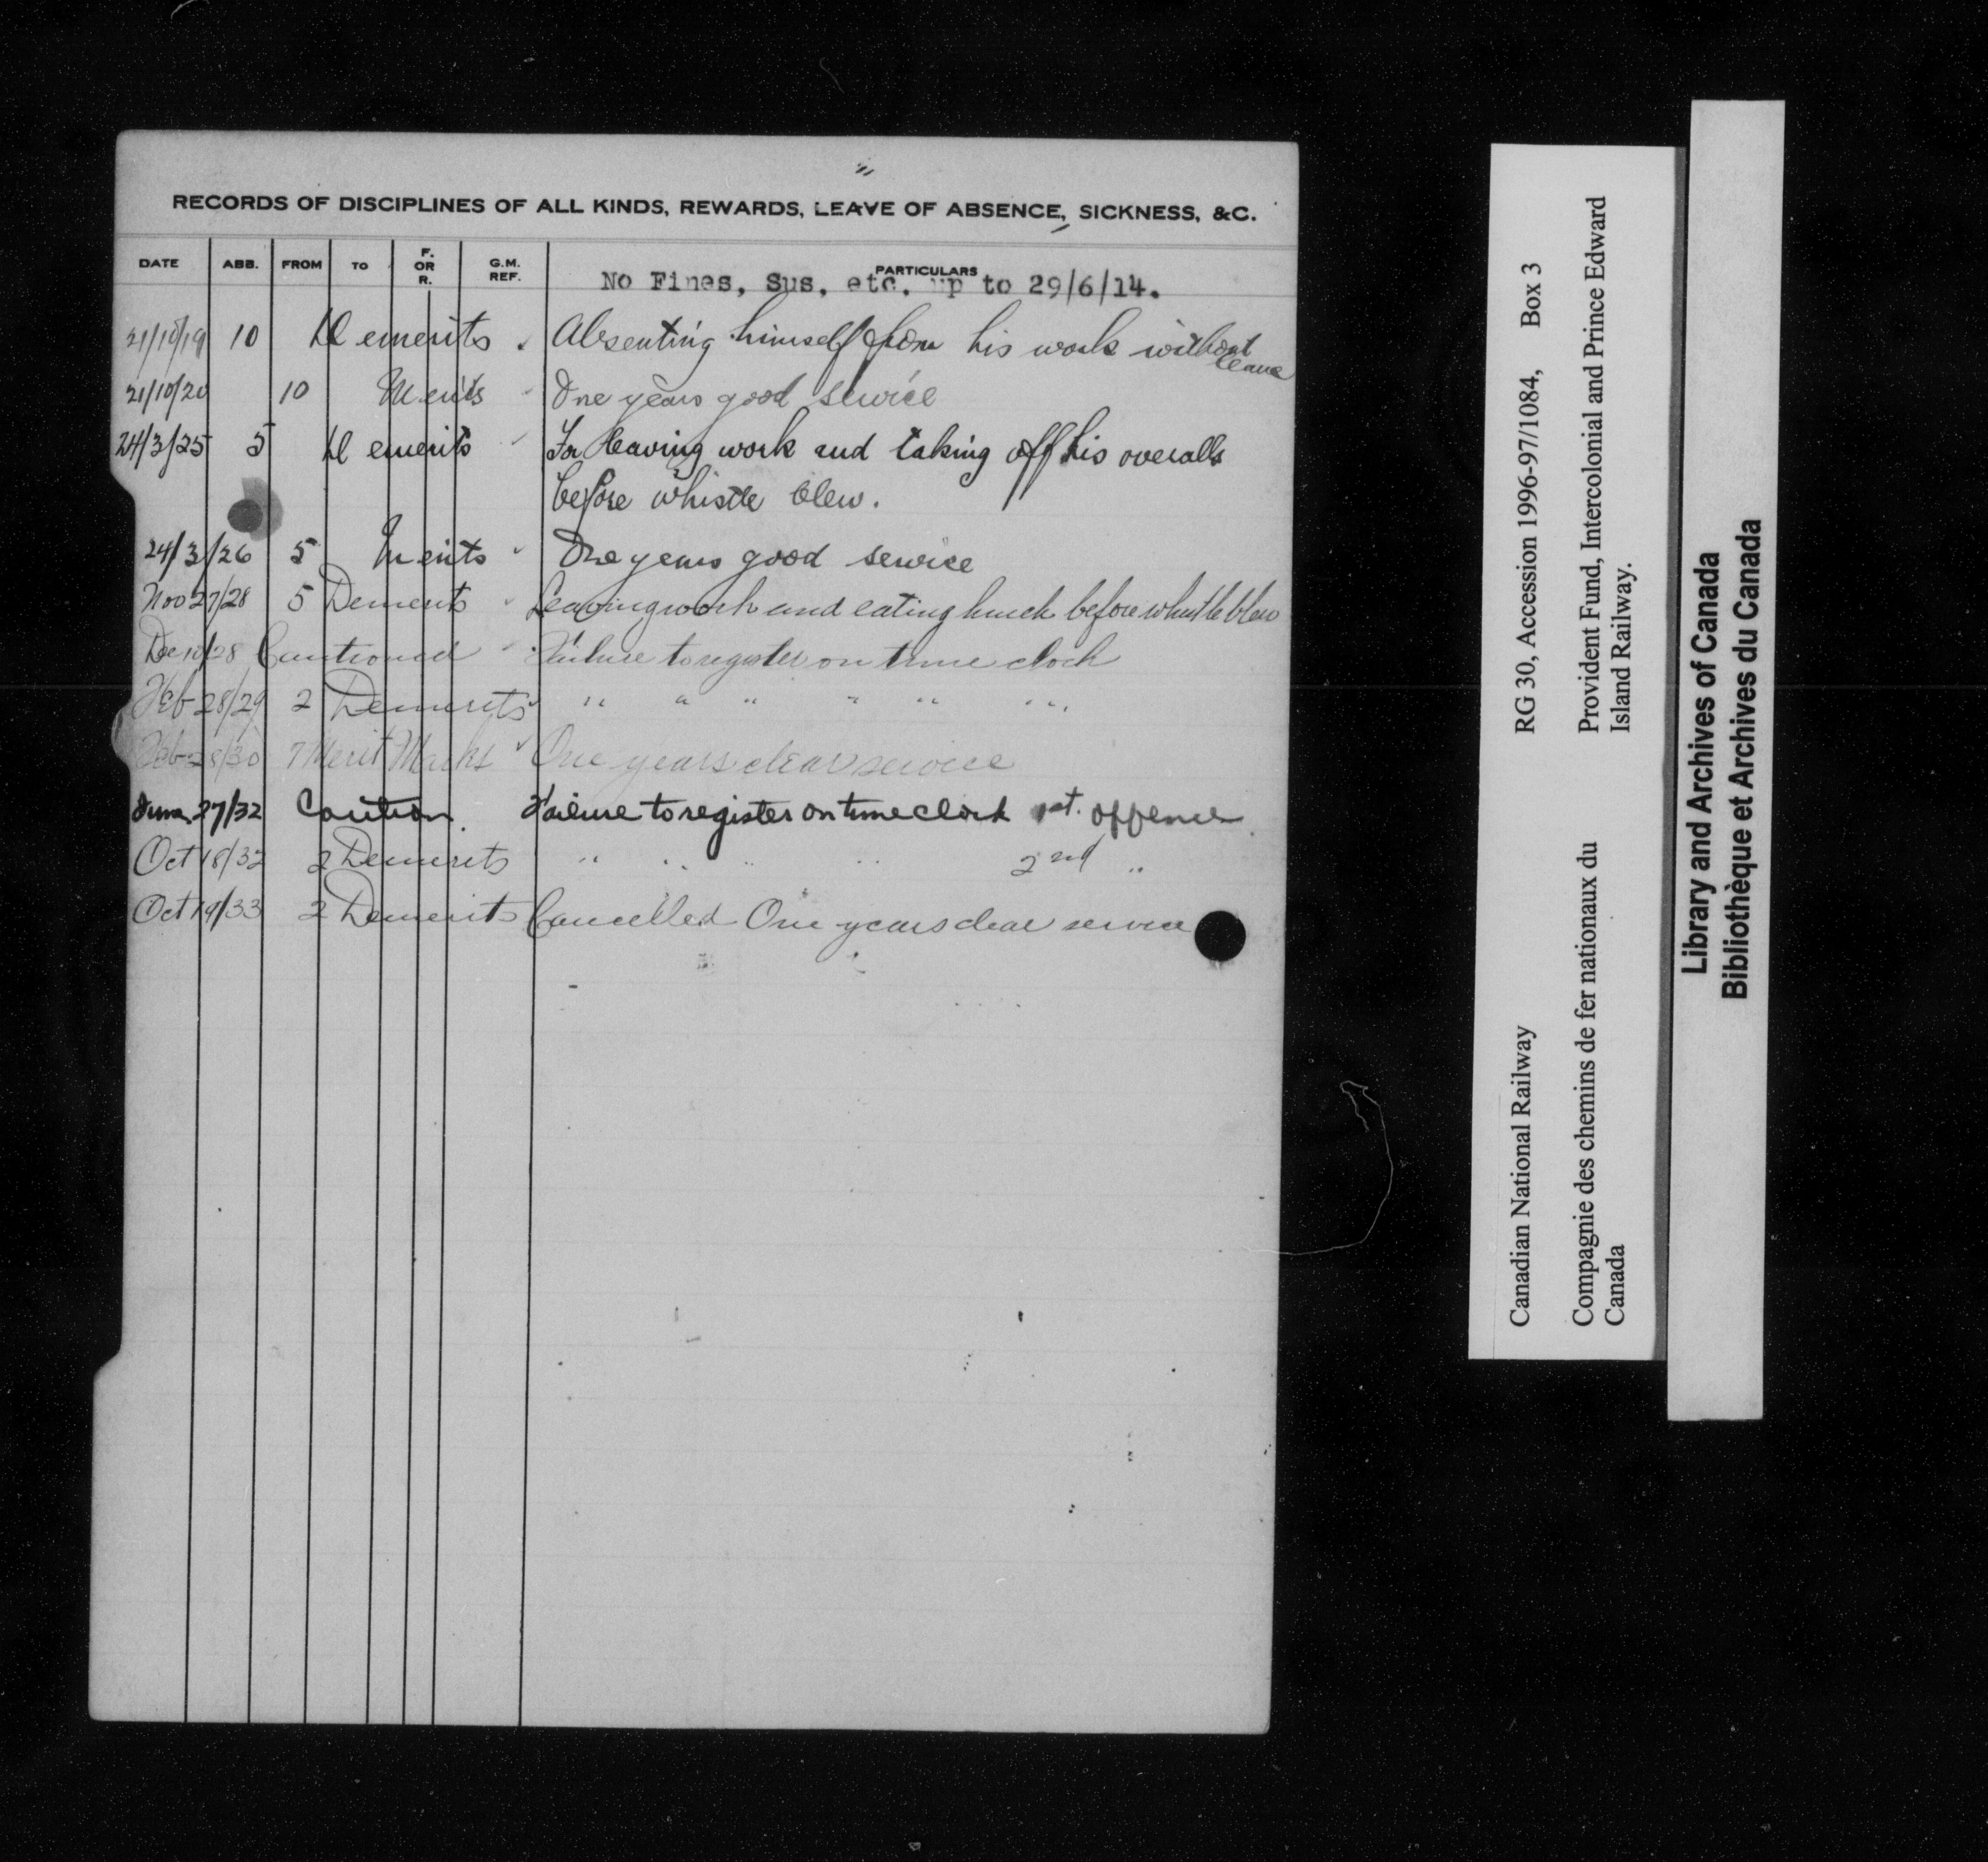 RECORDS OF DISCIPLINES OF ALL KINDS, REWARDS, LEAVE OF ABSENCE, SICKNESS, &C.
DATE ABB. FROM TO F. OR R. G.M. REF. PARTICULARS
No Fines, Sus, etc. up to 29/6/14.
21/10/19 10 Demerits Absenting himself from his work without leave
21/10/20 10 Merits One years good service
24/3/25 5 Demerits For leaving work and taking off his overalls
before whistle blew.
24/3/26 5 Merits One years good service
Nov 27/28 5 Demerits Leaving work and eating lunch before whistle blew
Dec 10/28 Cautioned Failure to register on time clock
Feb 28/29 2 Demerits " " " " " "
Feb 28/30 7 Merit Marks One years clear service
June 27/32 Caution. Failure to register on time clock 1st. offence.
Oct 18/32 2 Demerits " " " " 2nd "
Oct 19/33 2 Demerits Cancelled One years clear service
Canadian National Railway RG 30, Accession 1996-97/1084, Box 3
Compagnie des chemins de fer nationaux du
Canada
Provident Fund, Intercolonial and Prince Edward
Island Railway.
Library and Archives of Canada
Bibliothèque et Archives du Canada